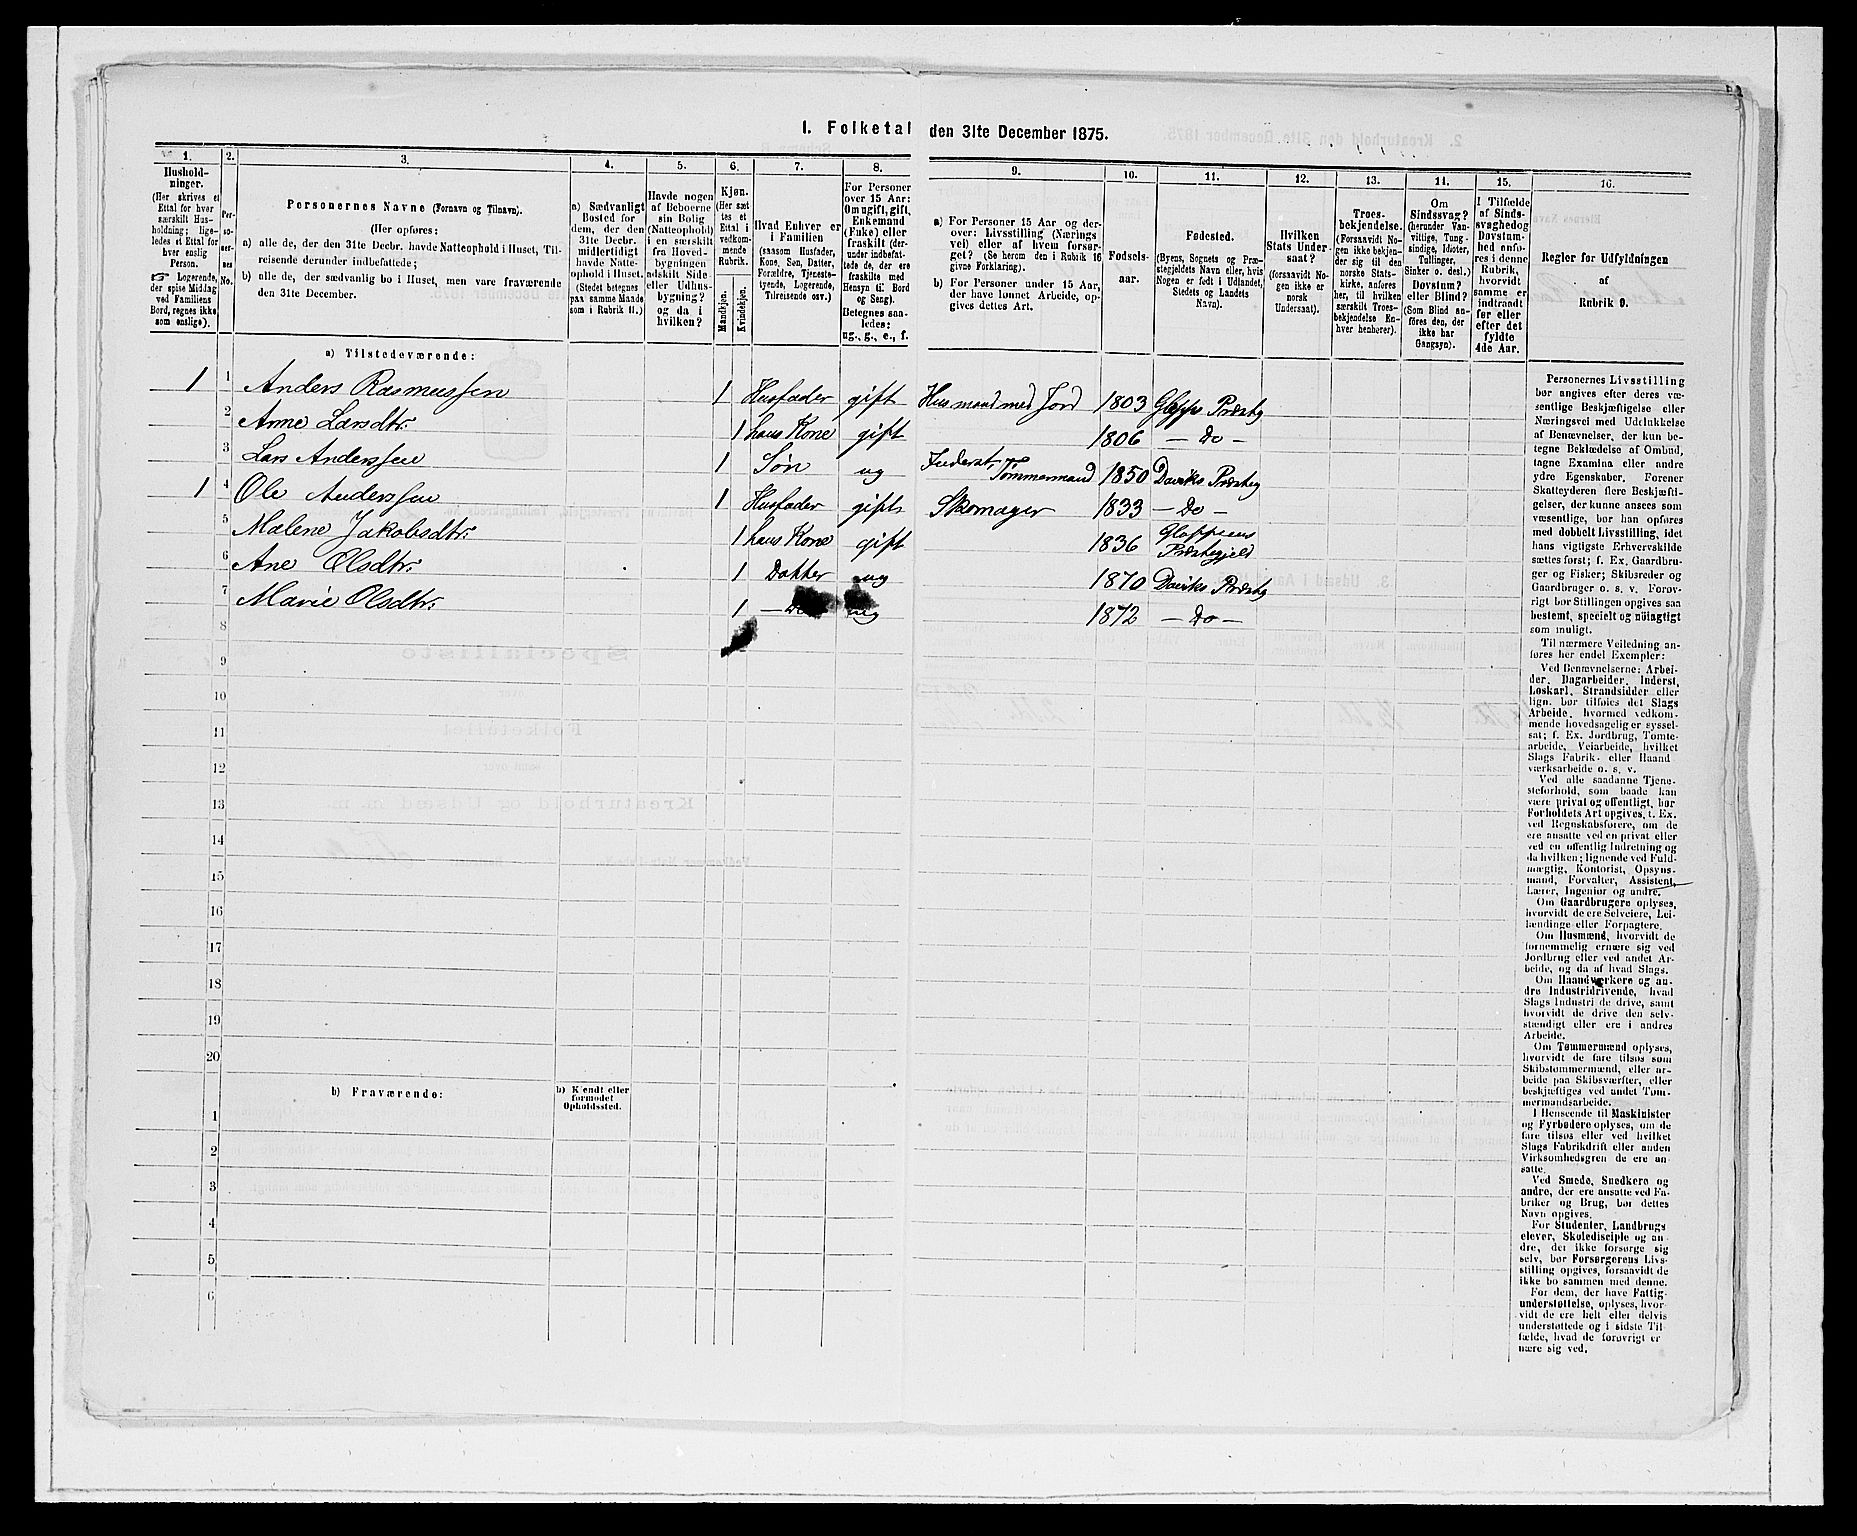 I. Folketal den 31te December 1875.
1. 2. 3. 4. 5. 6. 7. 8. 9. 10. 11. 12. 13. 14. 15. 16.
Hushold-
ninger.
(Her skrives et
Ettal for hver
særskilt Hus-
holdning; lige-
ledes et Ettal for
hver enslig
Person.
☞ Logerende,
der spise Middag
ved Familiens
Bord, regnes ikke
som enslige).
Per-
so-
ner-
nes
No.
Personernes Navne (Fornavn og Tilnavn).
(Her opføres:
a) alle de, der den 31te Decbr. havde Natteophold i Huset, Til-
reisende derunder indbefattede;
b) alle de, der sædvanlig bo i Huset, men vare fraværende
den 31te December.
a) Sædvanligt
Bosted for
dem, der den
31te Decbr.
midlertidigt
havde Natte-
ophold i Huset.
(Stedet betegnes
paa samme Maade
som i Rubrik 11.)
Havde nogen
af Beboerne
sin Bolig
(Natteophold)
i en særskilt
fra Hoved-
bygningen
adskilt Side-
eller Udhus-
bygning?
og da i
hvilken?
Kjøn.
(Her sæt-
tes et
Ettal i
vedkom-
mende
Rubrik.
Mandkjøn.
Kvindekjøn.
Hvad Enhver er
i Familien
(saasom Husfader,
Kone, Søn, Datter,
Forældre, Tjeneste-
tyende, Logerende,
Tilreisende osv.)
For Personer
over 15 Aar:
Om ugift, gift,
Enkemand
(Enke) eller
fraskilt (der-
under indbefat-
tede de, der ere
fraskilte med
Hensyn til Bord
og Seng).
Betegnes saa-
ledes:
ug., g., e., f.
a) For Personer 15 Aar og der-
over: Livsstilling (Nærings
vei) eller af hvem forsør-
get? (Se herom den i Rubrik 16
givne Forklaring).
b) For Personer under 15 Aar,
der have lønnet Arbeide, op-
gives dettes Art.
Fødsels-
aar.
Fødested.
(Byens, Sognets og Præ-
stegjeldets Navn eller, hvis
Nogen er født i Udlandet,
Stedets og Landets
Navn).
Hvilken
Stats Under-
saat?
(forsaavidt No-
gen ikke er
norsk
Undersaat).
Troes-
bekjendelse.
(Forsaavidt No-
gen ikke bekjen-
der sig til den
norske Stats-
kirke, anføres
her, til hvilken
særskilt Troes-
bekjendelse En-
hver henhører).
Om
Sindssvag?
(herunder Van-
vittige, Tung-
sindige, Idioter,
Tullinger,
Sinker o. desl.)
Døvstum?
eller Blind?
(Som Blind an-
føres den, der
ikke har
Gangsyn).
I Tilfælde
af Sinds-
svaghed og
Døvstum-
hed anfø-
res i denne
Rubrik,
hvorvidt
samme er
indtraadt
før eller
efter det
fyldte
4de Aar.
Regler for Udfyldningen
af
Rubrik 9.
a) Tilstedeværende:
1 1 Anders Rasmussen 1 Husfader gift Husmand med Jord 1803 Glopp. Præstg
2 Anne Larsdtr. 1 hans Kone gift 1806 – Do –
3 Lars Anderssen 1 Søn ug Inderst, Tømmermand 1850 Daviks Præsteg
1 4 Ole Anderssen 1 Husfader gift Skomager 1833 – Do –
5 Malene Jakobsdtr. 1 hans Kone gift 1836 Gloppens
Præstegjeld
6 Ane Olsdtr. 1 Datter ug 1870 Daviks Præstg
7 Marie Olsdtr. 1 – Do ug 1872 – Do –
8
9
10
11
12
13
14
15
16
17
18
19
20
b) Fraværende:
b) Kjendt eller
formodet
Opholdssted.
1
2
3
4
5
6
Personernes Livsstilling
bør angives efter deres væ-
sentlige Beskjæftigelse eller
Næringsvei med Udelukkelse
af Benævnelser, der kun be-
tegne Beklædelse af Ombud,
tagne Examina eller andre
ydre Egenskaber. Forener
Skatteyderen flere Beskjæfti-
gelser, der kunne ansees som
væsentlige, bør han opføres
med dobbelt Livsstilling, idet
hans vigtigste Erhvervskilde
sættes først; f. Ex. Gaardbru-
ger og Fisker; Skibsreder og
Gaardbruger o. s. v. Forøv-
rigt bør Stillingen opgives saa
bestemt, specielt og nøiagtigt
som muligt.
Til nærmere Veiledning an-
føres her endel Exempler:
Ved Benævnelserne: Arbei-
der, Dagarbeider, Inderst,
Løskarl, Strandsidder eller
lign. bør tilføies det Slags
Arbeide, hvormed vedkom-
mende hovedsagelig er syssel-
sat; f. Ex. Jordbrug, Tomte-
arbeide, Veiarbeide, hvilket
Slags Fabrik- eller Haand
værksarbeide o. s. v.
Ved alle saadanne Tjene-
steforhold, som baade kan
være privat og offentligt, bør
Forholdets Art opgives, t. Ex.
ved Regnskabsførere, om de
ere ansatte ved en privat eller
ved en offentlig Indretning og
da hvilken; lignende ved Fuld-
mægtig, Kontorist, Opsyns-
mand, Forvalter, Assistent,
Lærer, Ingeniør og andre.
Om Gaardbrugere oplyses,
hvorvidt de ere Selveiere, Lei-
lændinge eller Forpagtere.
Om Husmænd, hvorvidt de
fornemmelig ernære sig ved
Jordbrug eller ved andet Ar-
beide, og da af hvad Slags.
Om Haandværkere og an-
dre Industridrivende, hvad
Slags Industri de drive, samt
hvorvidt de drive den selv-
stændigt eller ere i andres
Arbeide.
Om Tømmermænd oplyses,
hvorvidt de fare tilsøs som
Skibstømmermænd, eller ar-
beide paa Skibsværfter, eller
beskjæftiges ved andet Tøm-
mermandsarbeide.
I Henseende til Maskinister
og Fyrbødere oplyses, om de
fare tilsøs eller ved hvilket
Slags Fabrikdrift eller anden
Virksomhedsgren de ere an
satte.
Ved Smede, Snedkere og
andre, der ere ansatte ved Fa-
briker og Brug, bør dettes
Navn opgives.
For Studenter, Landbrugs
elever, Skoledisciple og an
dre, der ikke forsørge sig
selv, bør Forsørgerens Livs-
stilling opgives, forsaavidt de
ikke bo sammen med denne.
For dem, der have Fattig
understøttelse, oplyses, hvor-
vidt de ere helt eller delvis
understøttede og i sidste Til
fælde, hvad de forøvrigt er
nære sig ved.